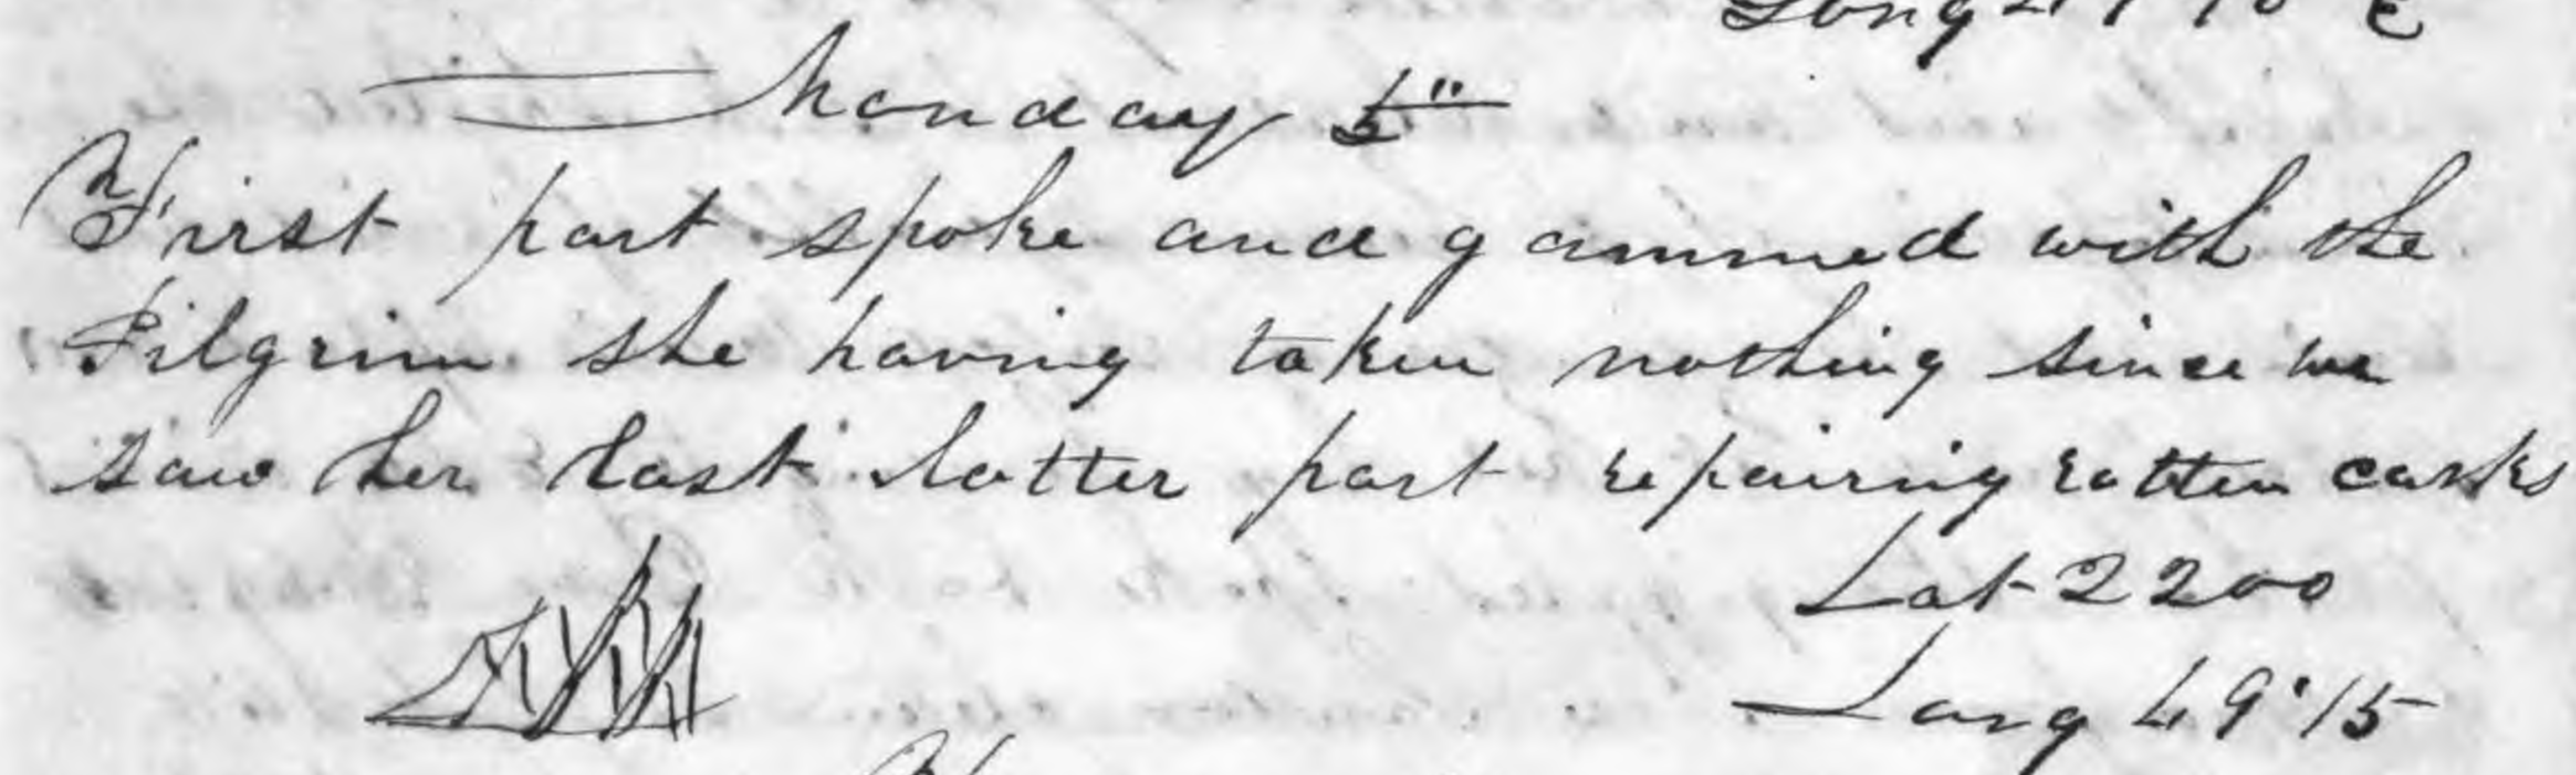 Monday 5"
First part spoke and gammed with the
Pilgrim she having taken nothing since we
saw her last latter part repairing rotten casks
Lat 22 00
Long 49°15